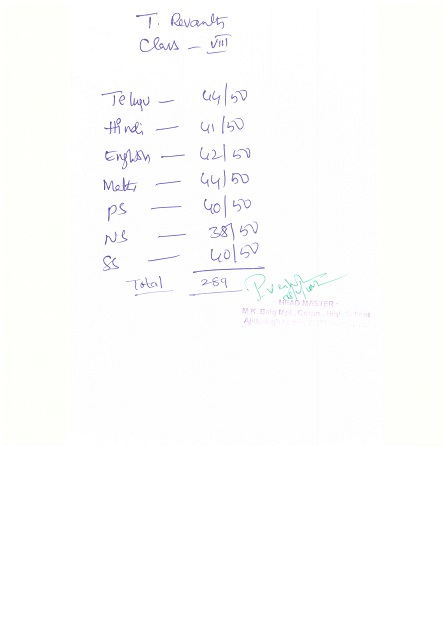 T. Revanth
Class - VIII
Telugu - 44/50
Hindi - 41/50
English - 42/50
Maths - 44/50
PS - 40/50
NS - 38/50
SS - 40/50
Total 289
HEAD MASTER